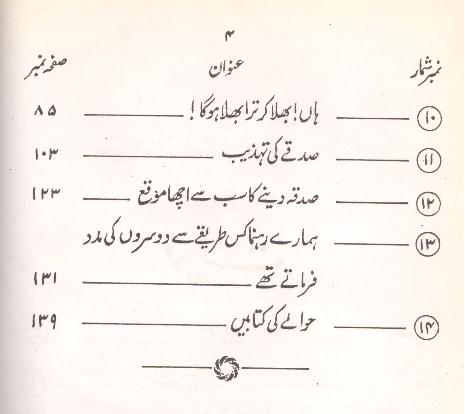 ۴
نمبر شمار عنوان صفحہ نمبر
۱۰ ہاں! بھلا کر ترا بھلا ہوگا! ۸۵
۱۱ صدقے کی تہذیب ۱۰۳
۱۲ صدقہ دینے کا سب سے اچھا موقع ۱۲۳
۱۳ ہمارے رہنما کس طریقے سے دوسروں کی مدد
فرماتے تھے ۱۳۱
۱۴ حوالے کی کتابیں ۱۳۹